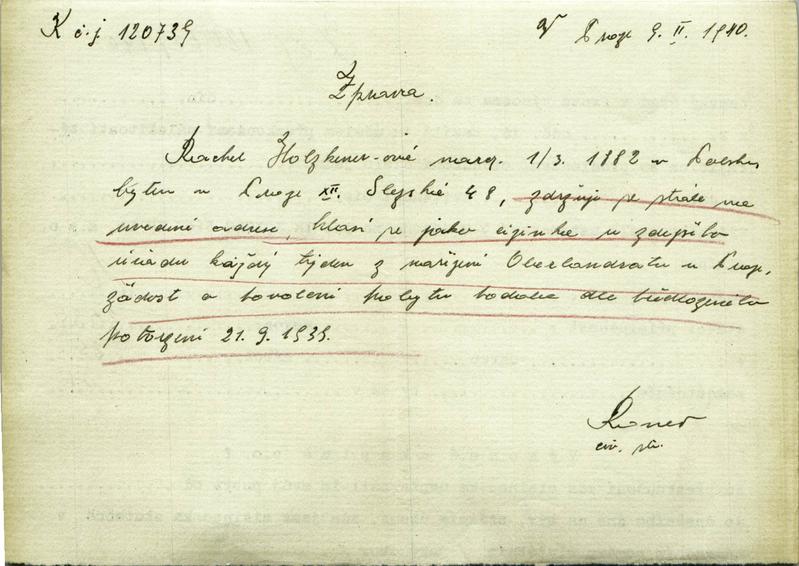 K č.j. 120739
V Praze 9. II. 1940.
Zpráva.
Rachel Holzkener-ové naroz. 1/3. 1882 v Polsku
bytem v Praze XII. Slezská 48, zdržuje se stále na
uvedené adrese, hlásí se jako cizinka u zdejšího
úřadu každý týden z nařízení Oberlandratu v Praze,
žádost o povolení pobytu podala dle předloženého
potvrzení 21. 9. 1939.